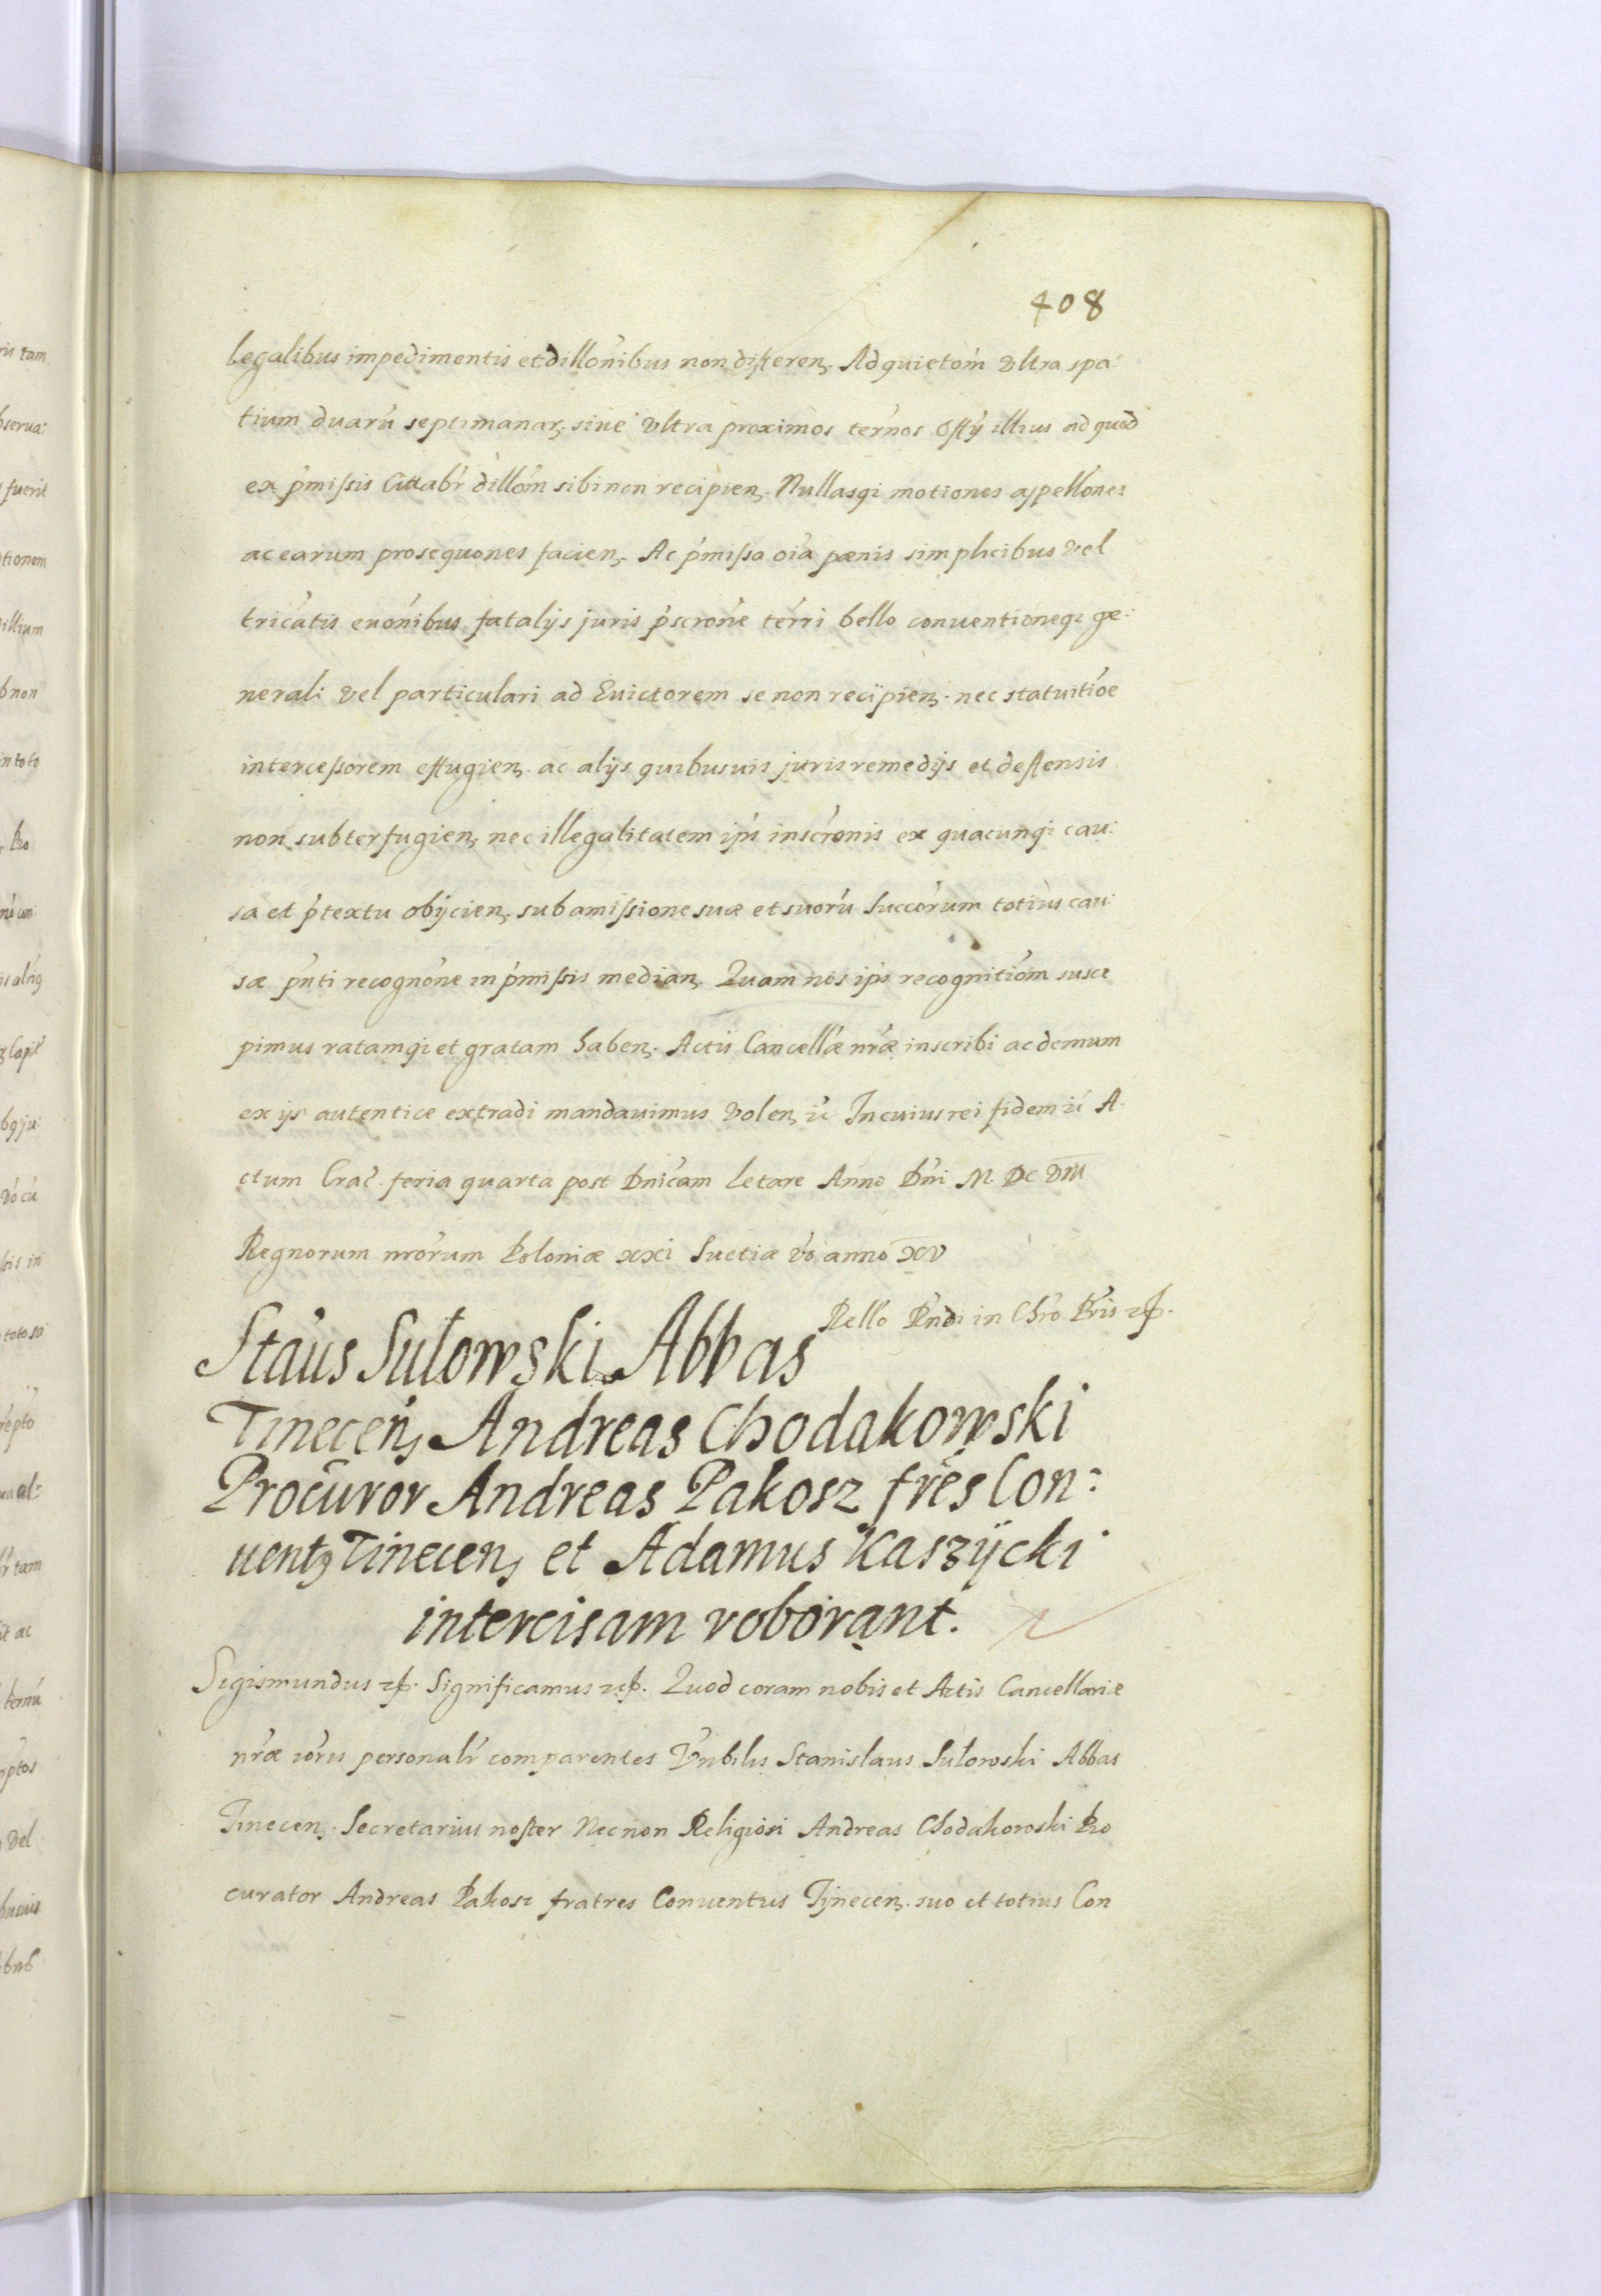 408
legalibus impedimentis et dillo᷃nibus non differen. Ad quieto᷃m vltra spa:
tium duarũ septimanar. siue vltra proximos ter᷃nos offÿ illius ad quod
ex p᷃missis Cittabr᷃ dillo᷃m sibi non recipien. Nullasqi motiones appello᷃nes
ac earum prosequones facien. Ac p᷃missa oi᷃a pænis simplicibus vel
tric᷃atis euo᷃nibus fatalijs juris p᷃scro᷃ne ter᷃ri bello conuentioneqz gæ:
nerali vel particulari ad Euictorem se non recipien. nec statuiti᷃oe
intercessorem effugien. ac alijs quibusuis juris remedijs et deffensis
non subterfugien. nec illegalitatem ip᷃s inscr᷃onis ex quacunqi cau:
sa et p᷃textu obijcien. sub amissione suæ et suorũ Succo᷃rum totius cau:
sæ p᷃nti recogno᷃ne in p᷃missis median. Quam nos ip᷃s recogniti᷃om susce
pimus ratamqi et gratam haben. Actis Cancell᷃æ nr᷃æ inscribi ac demum
ex ijs autentice extradi mandauimus volen. ic᷃ In cuius rei fidem ic᷃ A:
ctum Crac᷃. feria quarta post Dni᷃cam Letare Anno Dn᷃i M DC VIII
Regnorum nro᷃rum Poloniæ xxi Suetiæ v᷃o anno xv
Rello R᷃ndi in Chr᷃o Pr᷃is etc.
Sta᷃us Sułowski Abbas
Tinecen᷃, Andreas Chodakowski
Procu᷃ror Andreas Pakosz fr᷃es Con:
uentz Tinecen, et Adamus Kaszÿcki
intercisam roborant.
Sigismundus etc. Significamus etc. Quod coram nobis et Actis Cancellariæ
nr᷃æ io᷃ru personalr᷃ comparentes V᷃nbilis Stanislaus Sułowski Abbas
Tinecen. Secretarius noster Nec non Religiosi Andreas Chodakowski Pro
curator Andreas Pakosz fratres Conuentus Tÿnecen. suo et totius Con